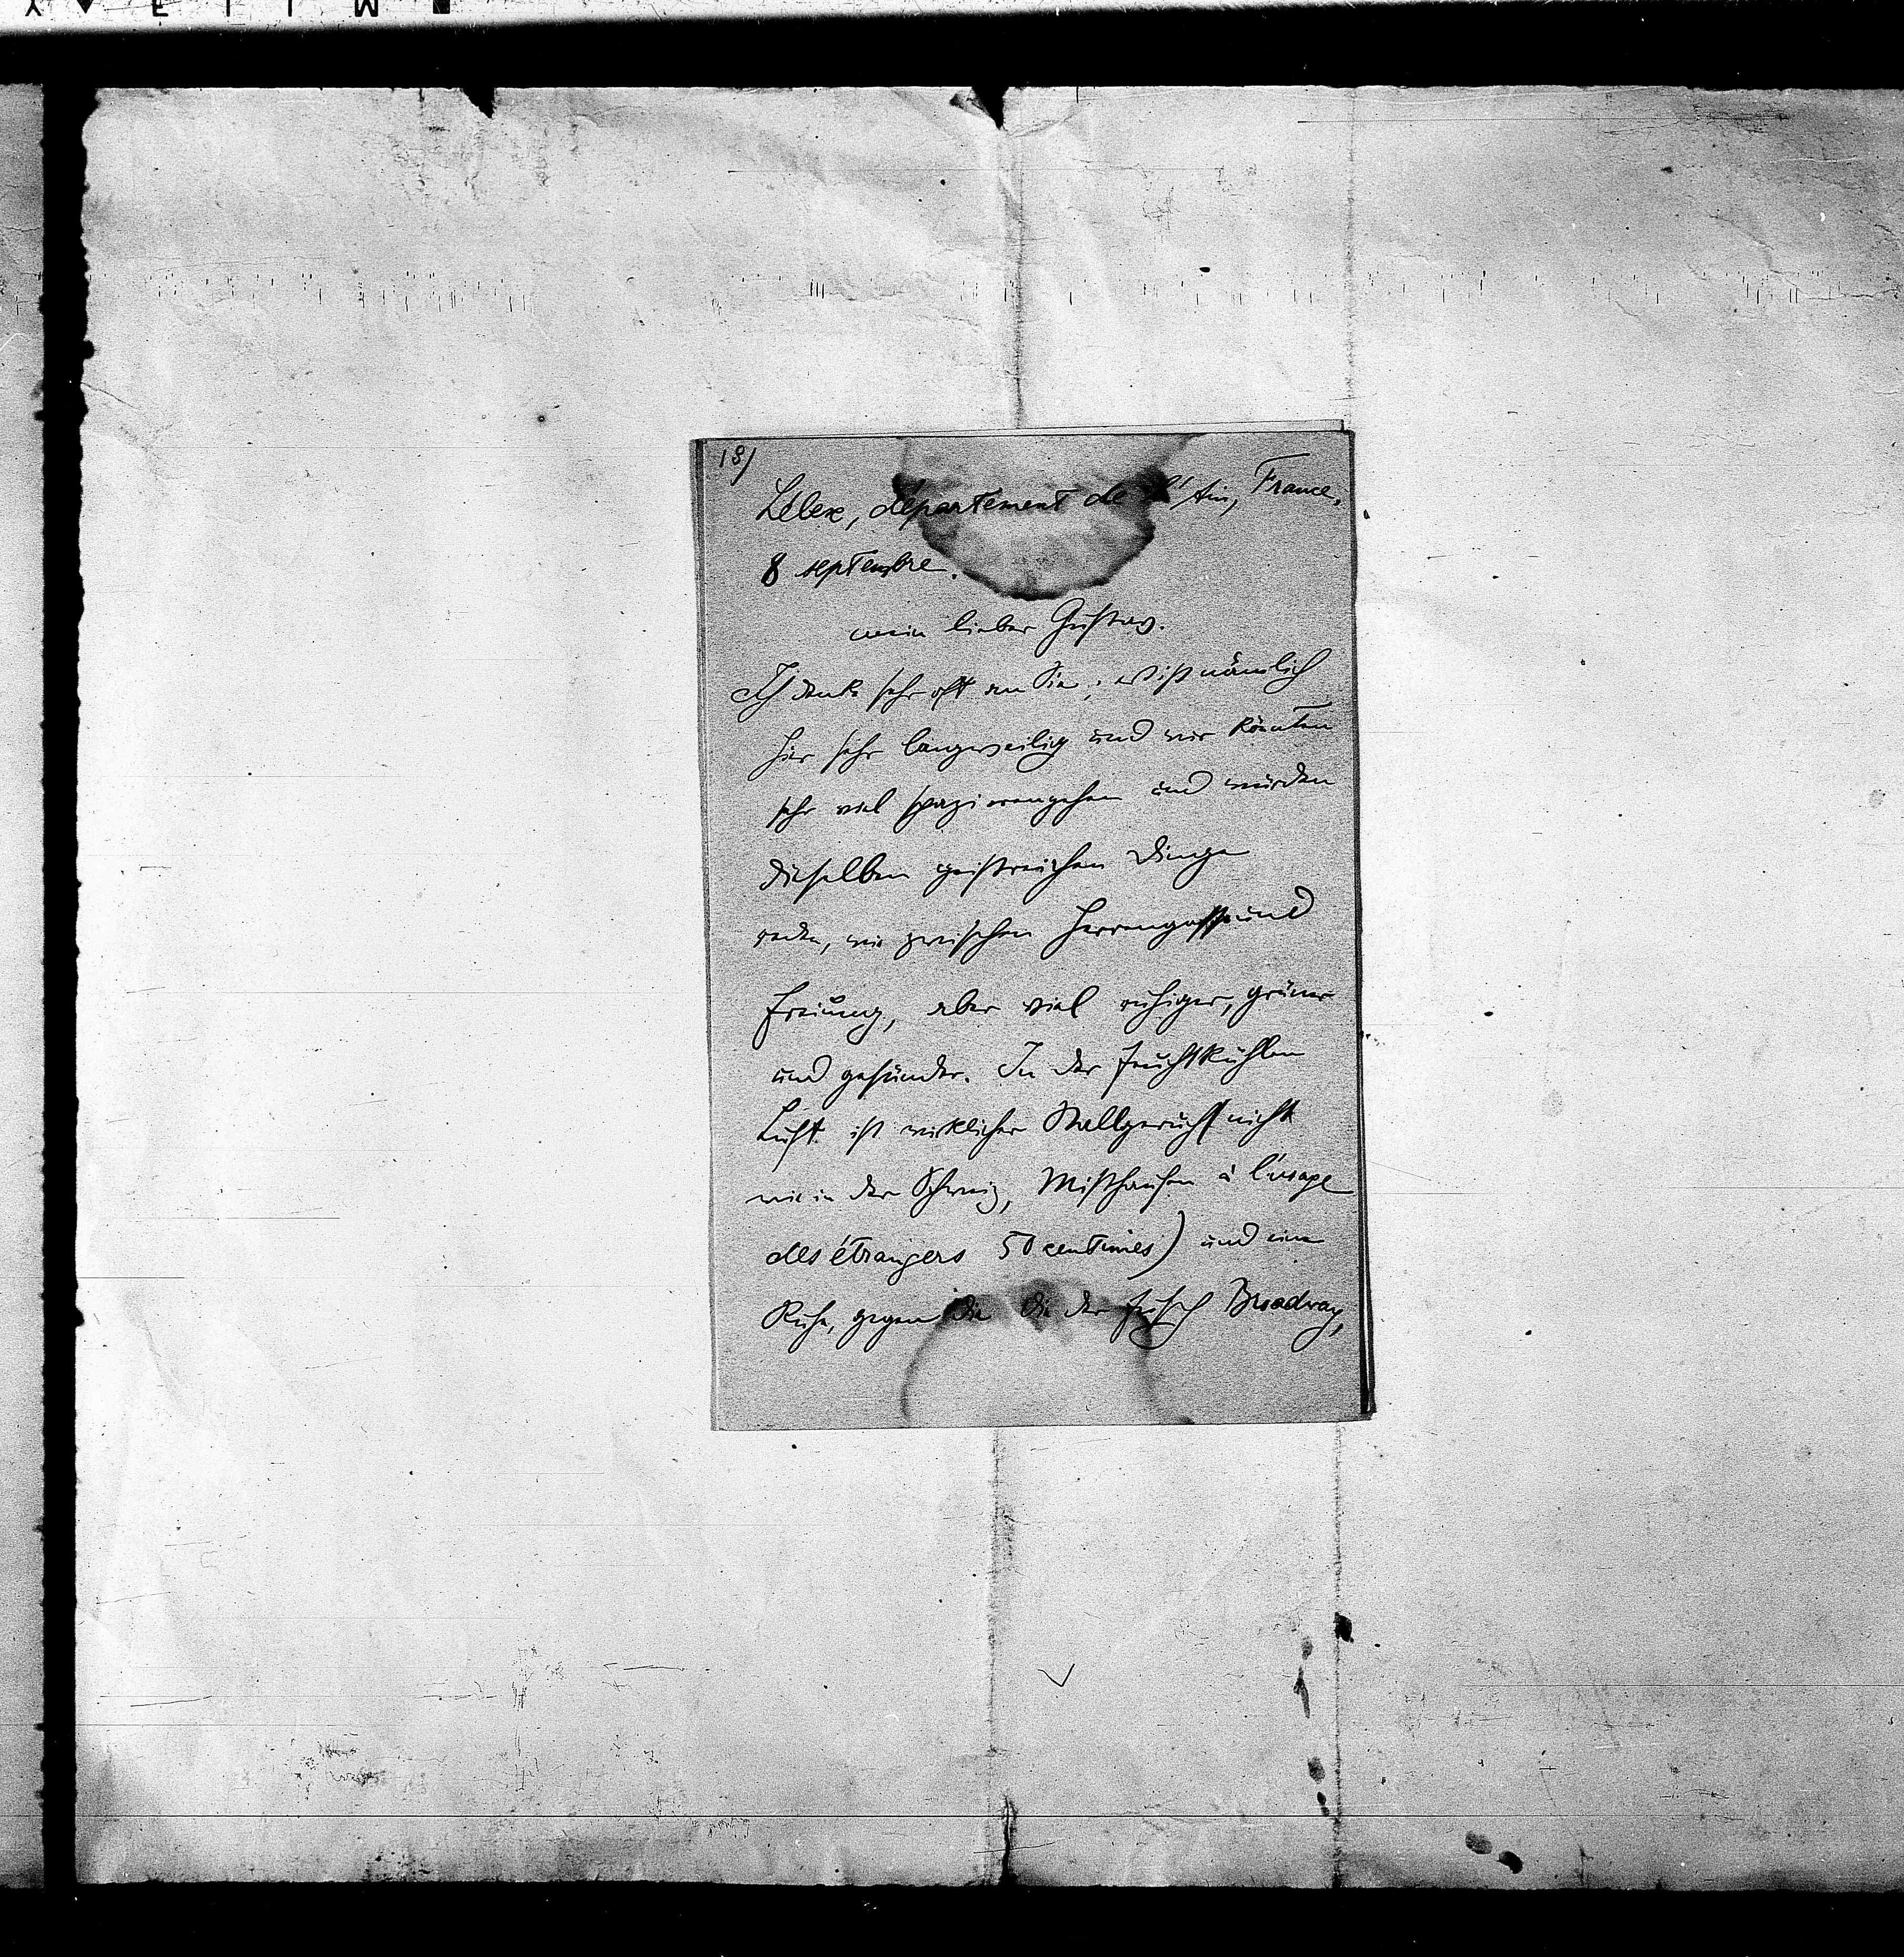 18)
Lélex, département de l'Ain, France.
8 septembre.
mein lieber Gustav.
Ich denke sehr oft an Sie; es ist nämlich
hier sehr langweilig und wir könnten
sehr viel spazierengehen und würden
dieselben geistreichen Dinge
reden, wie zwischen Herrengasse und
Freiung, aber viel ruhiger, grüner
und gesünder. In der feuchtkühlen
Luft ist wirklicher Stallgeruch nicht
wie in der Schweiz, Misthaufen à l'usage
des étrangers 50 centimes) und eine
Ruhe, gegen die die der Broadway,